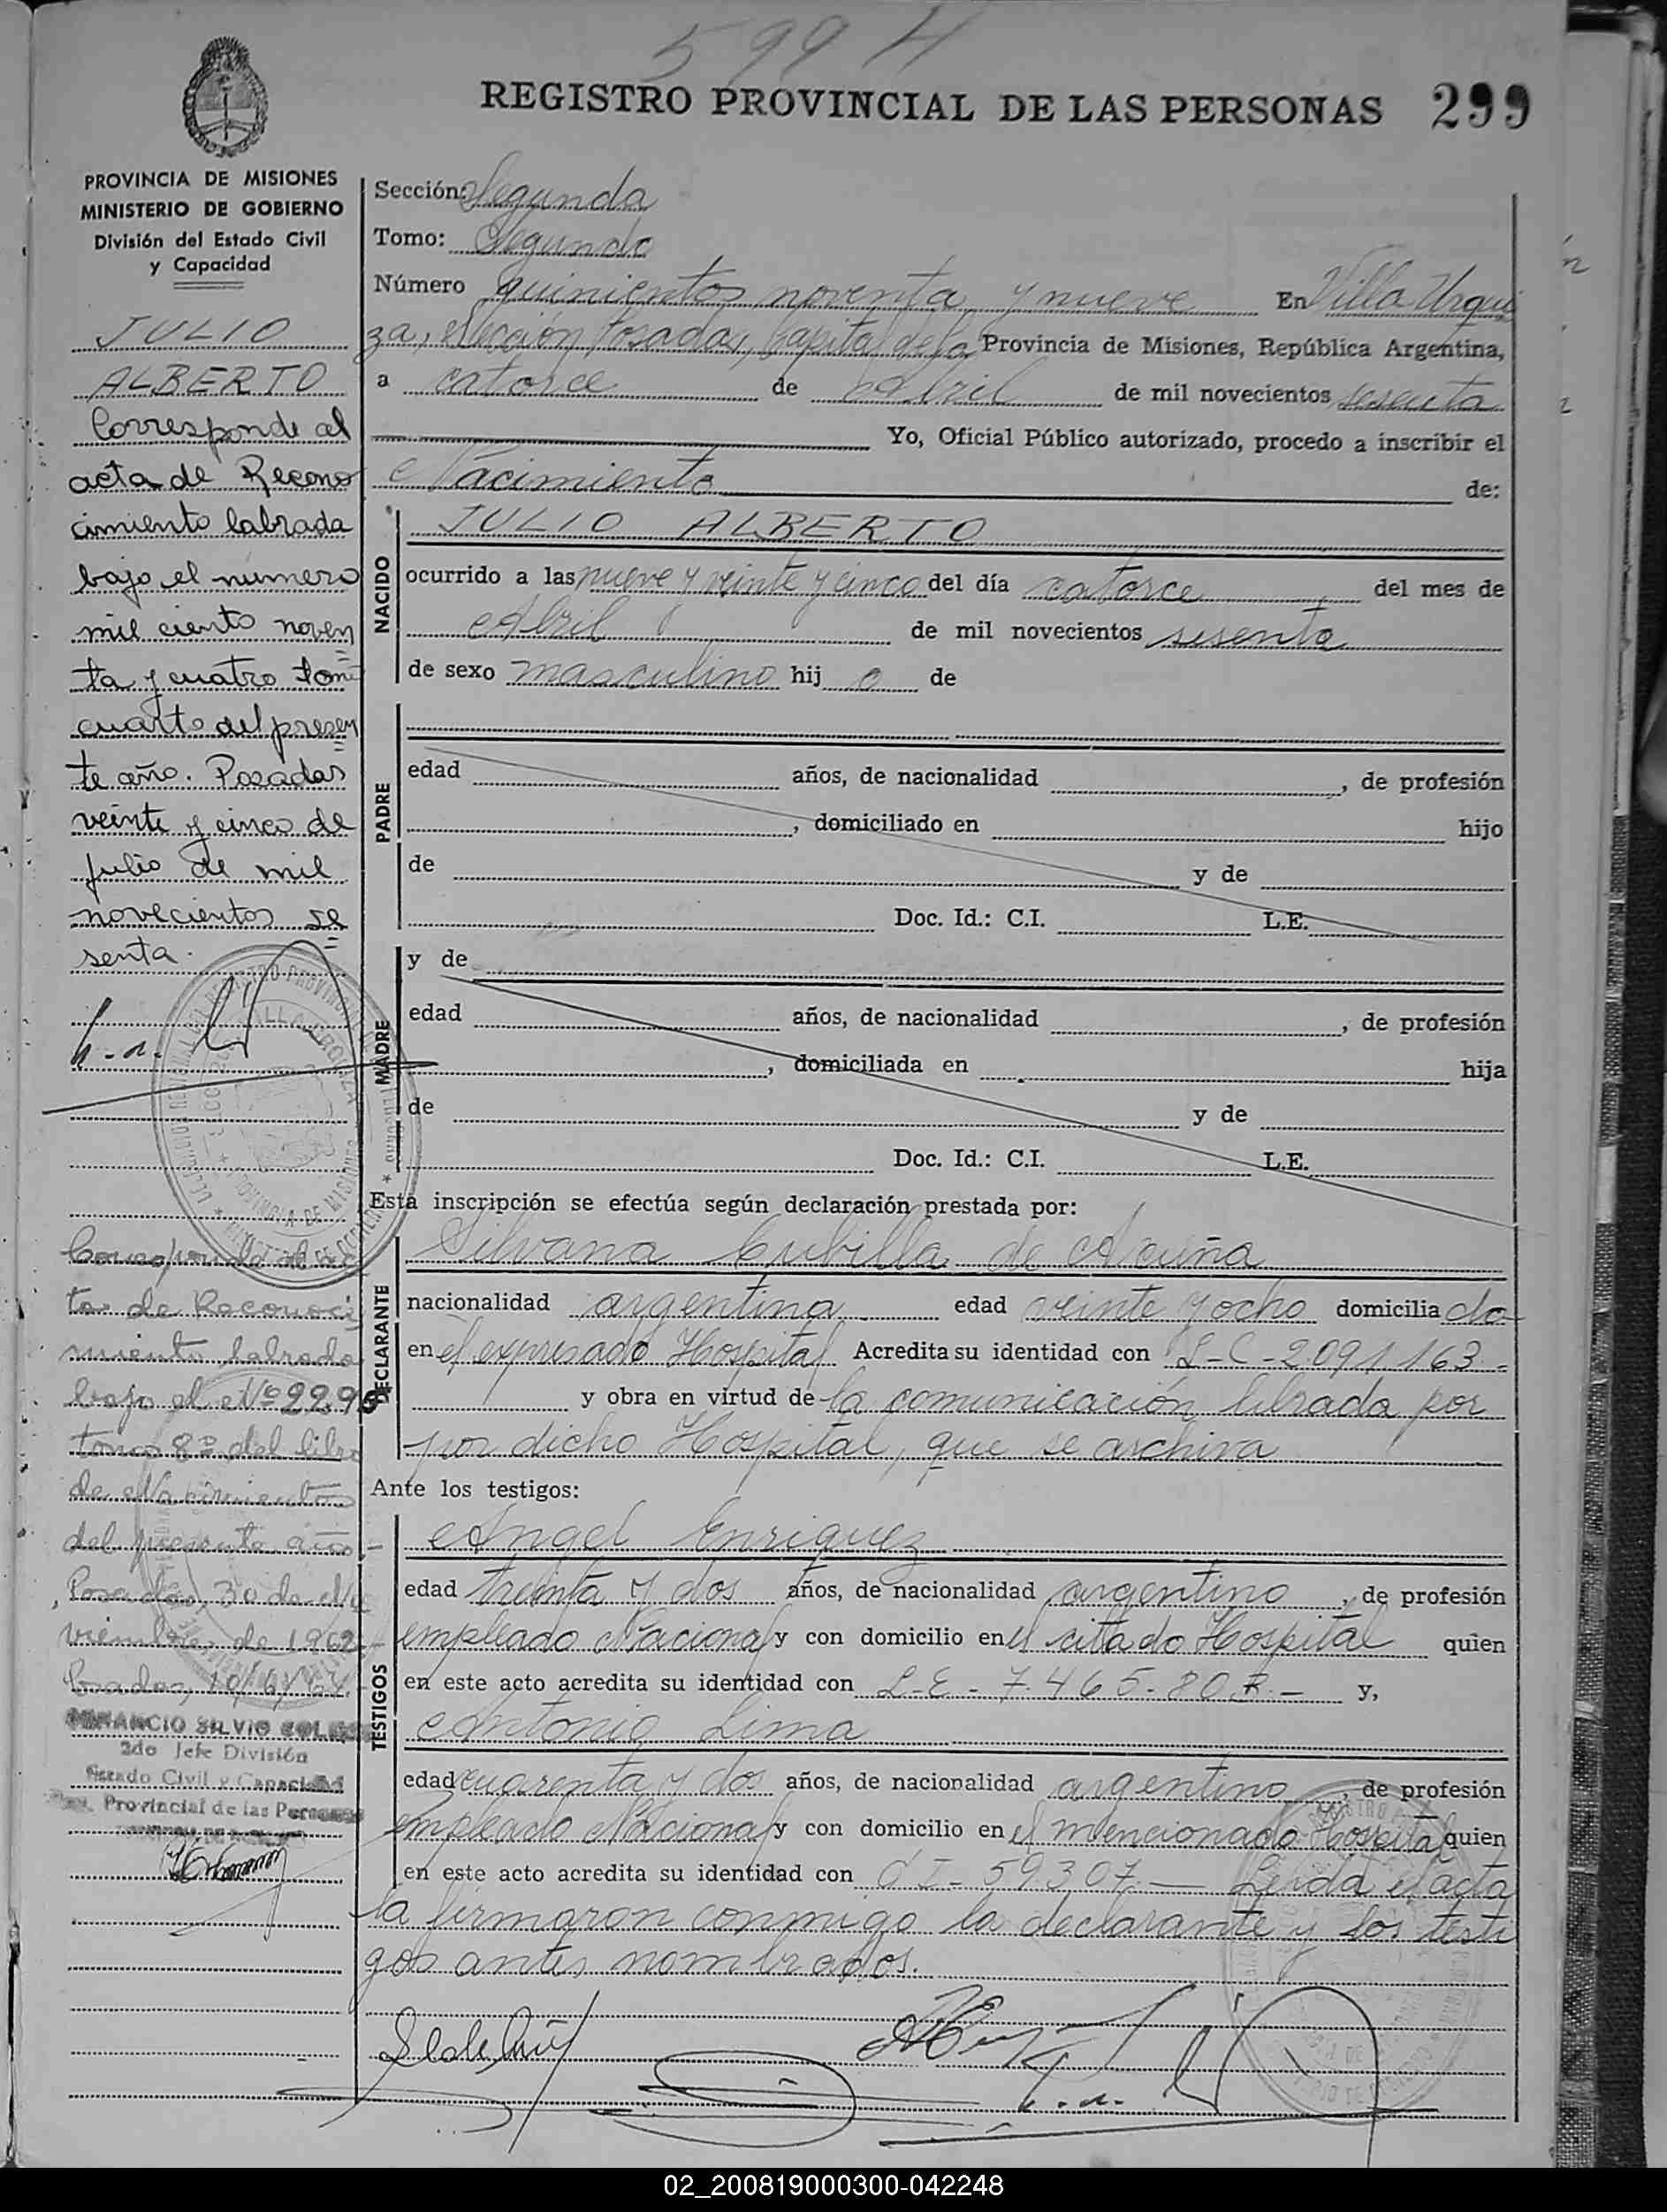 599 H
REGISTRO PROVINCIAL DE LAS PERSONAS 299
PROVINCIA DE MISIONES
MINISTERIO DE GOBIERNO
División del Estado Civil
y Capacidad
JULIO
ALBERTO
Corresponde al
acta de Recono
cimiento labrada
bajo el número
mil ciento noven
ta y cuatro tomo
cuarto del presen
te año. Posadas
veinte y cinco de
julio de mil
novecientos se
senta.
Corresponde al ac
ta de Reconoci
miento labrada
bajo el Nº 229
tomo 8º del libro
de Nacimientos
del presente año
Posadas, 30 de No
viembre de 1962
Posadas,
VENANCIO SILVIO
2do Jefe División
Estado Civil y Capacidad
Provincial de las Personas
Sección: Segunda
Tomo: Segundo
Número quinientos noventa y nueve En Villa Urqui
za, Sección Posadas, Capital de la Provincia de Misiones, República Argentina,
a catorce de Abril de mil novecientos sesenta
Yo, Oficial Público autorizado, procedo a inscribir el
Nacimiento de:
NACIDO
JULIO ALBERTO
ocurrido a las nueve y veinte y cinco del día catorce del mes de
Abril de mil novecientos sesenta
de sexo masculino hij o de
PADRE
edad años, de nacionalidad , de profesión
, domiciliado en hijo
de y de
Doc. Id.: C.I. L.E.
MADRE
y de
edad años, de nacionalidad , de profesión
, domiciliada en hija
de y de
Doc. Id.: C.I. L.E.
Esta inscripción se efectúa según declaración prestada por:
DECLARANTE
Silvana Cubilla de Acuña
nacionalidad argentina edad veinte y ocho domicilia da
en el expresado Hospital Acredita su identidad con L-C-2091163-
y obra en virtud de la comunicación librada por
por dicho Hospital, que se archiva
Ante los testigos:
TESTIGOS
Angel Enriquez
edad treinta y dos años, de nacionalidad argentino, de profesión
empleado Nacional y con domicilio en el citado Hospital quien
en este acto acredita su identidad con L-E- 7.465.80 y,
Antonio Lima
edad cuarenta y dos años, de nacionalidad argentino, de profesión
empleado Nacional y con domicilio en el mencionado Hospital quien
en este acto acredita su identidad con C I- 59307.— Leída el acta
la firmaron conmigo la declarante y los testi
gos antes nombrados.
02_200819000300-042248